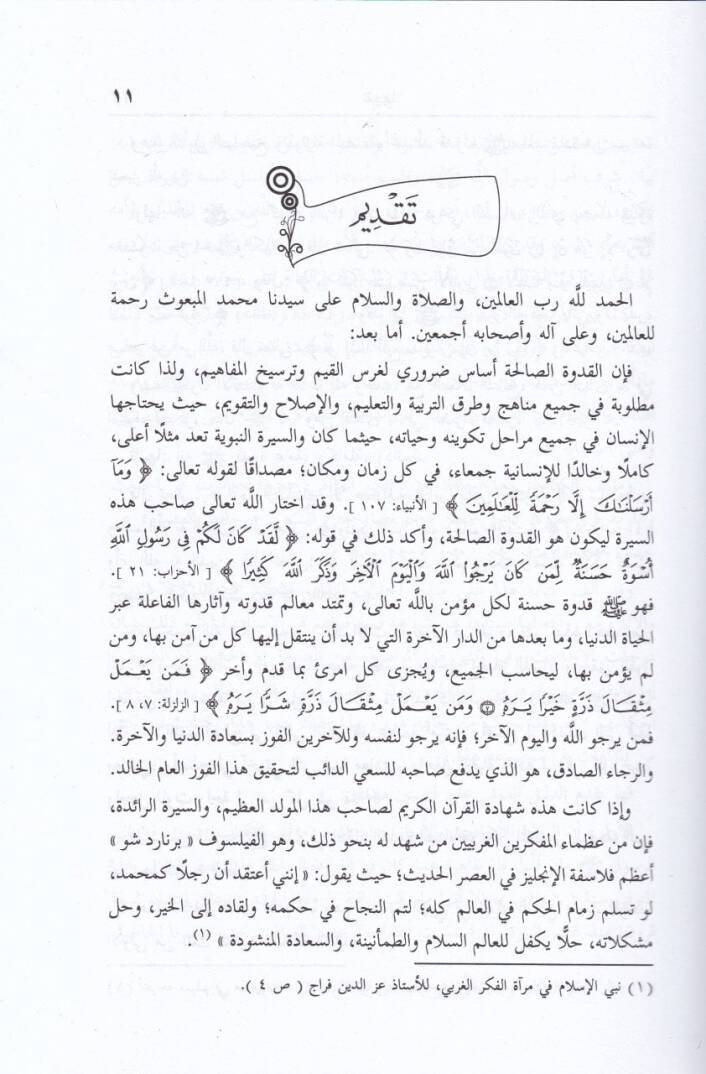 ١١
تَقْدِيم
الحمد للَّه رب العالمين، والصلاة والسلام على سيدنا محمد المبعوث رحمة
للعالمين، وعلى آله وأصحابه أجمعين. أما بعد:
فإن القدوة الصالحة أساس ضروري لغرس القيم وترسيخ المفاهيم، ولذا كانت
مطلوبة في جميع مناهج وطرق التربية والتعليم، والإصلاح والتقويم، حيث يحتاجها
الإنسان في جميع مراحل تكوينه وحياته، حيثما كان والسيرة النبوية تعد مثلًا أعلى،
كاملًا وخالدًا للإنسانية جمعاء، في كل زمان ومكان؛ مصداقًا لقوله تعالى: ﴿ وَمَآ
أَرْسَلْنَٰكَ إِلَّا رَحْمَةً لِّلْعَٰلَمِينَ ﴾ [ الأنبياء: ١٠٧ ]. وقد اختار اللَّه تعالى صاحب هذه
السيرة ليكون هو القدوة الصالحة، وأكد ذلك في قوله: ﴿ لَّقَدْ كَانَ لَكُمْ فِى رَسُولِ ٱللَّهِ
أُسْوَةٌ حَسَنَةٌ لِّمَن كَانَ يَرْجُوا۟ ٱللَّهَ وَٱلْيَوْمَ ٱلْأَخِرَ وَذَكَرَ ٱللَّهَ كَثِيرًا ﴾ [ الأحزاب: ٢١ ].
فهو ﷺ قدوة حسنة لكل مؤمن باللَّه تعالى، وتمتد معالم قدوته وآثارها الفاعلة عبر
الحياة الدنيا، وما بعدها من الدار الآخرة التي لا بد أن ينتقل إليها كل من آمن بها، ومن
لم يؤمن بها، ليحاسب الجميع، ويُجزى كل امرئ بما قدم وأخر ﴿ فَمَن يَعْمَلْ
مِثْقَالَ ذَرَّةٍ خَيْرًا يَرَهُۥ ۝٧ وَمَن يَعْمَلْ مِثْقَالَ ذَرَّةٍ شَرًّا يَرَهُۥ ﴾ [ الزلزلة: ٧، ٨ ].
فمن يرجو اللَّه واليوم الآخر؛ فإنه يرجو لنفسه وللآخرين الفوز بسعادة الدنيا والآخرة.
والرجاء الصادق، هو الذي يدفع صاحبه للسعي الدائب لتحقيق هذا الفوز العام الخالد.
وإذا كانت هذه شهادة القرآن الكريم لصاحب هذا المولد العظيم، والسيرة الرائدة،
فإن من عظماء المفكرين الغربيين من شهد له بنحو ذلك، وهو الفيلسوف « برنارد شو »
أعظم فلاسفة الإنجليز في العصر الحديث؛ حيث يقول: « إنني أعتقد أن رجلًا كمحمد،
لو تسلم زمام الحكم في العالم كله؛ لتم النجاح في حكمه؛ ولقاده إلى الخير، وحل
مشكلاته، حلًّا يكفل للعالم السلام والطمأنينة، والسعادة المنشودة » (١).
(١) نبي الإسلام في مرآة الفكر الغربي، للأستاذ عز الدين فراج ( ص ٤ ).